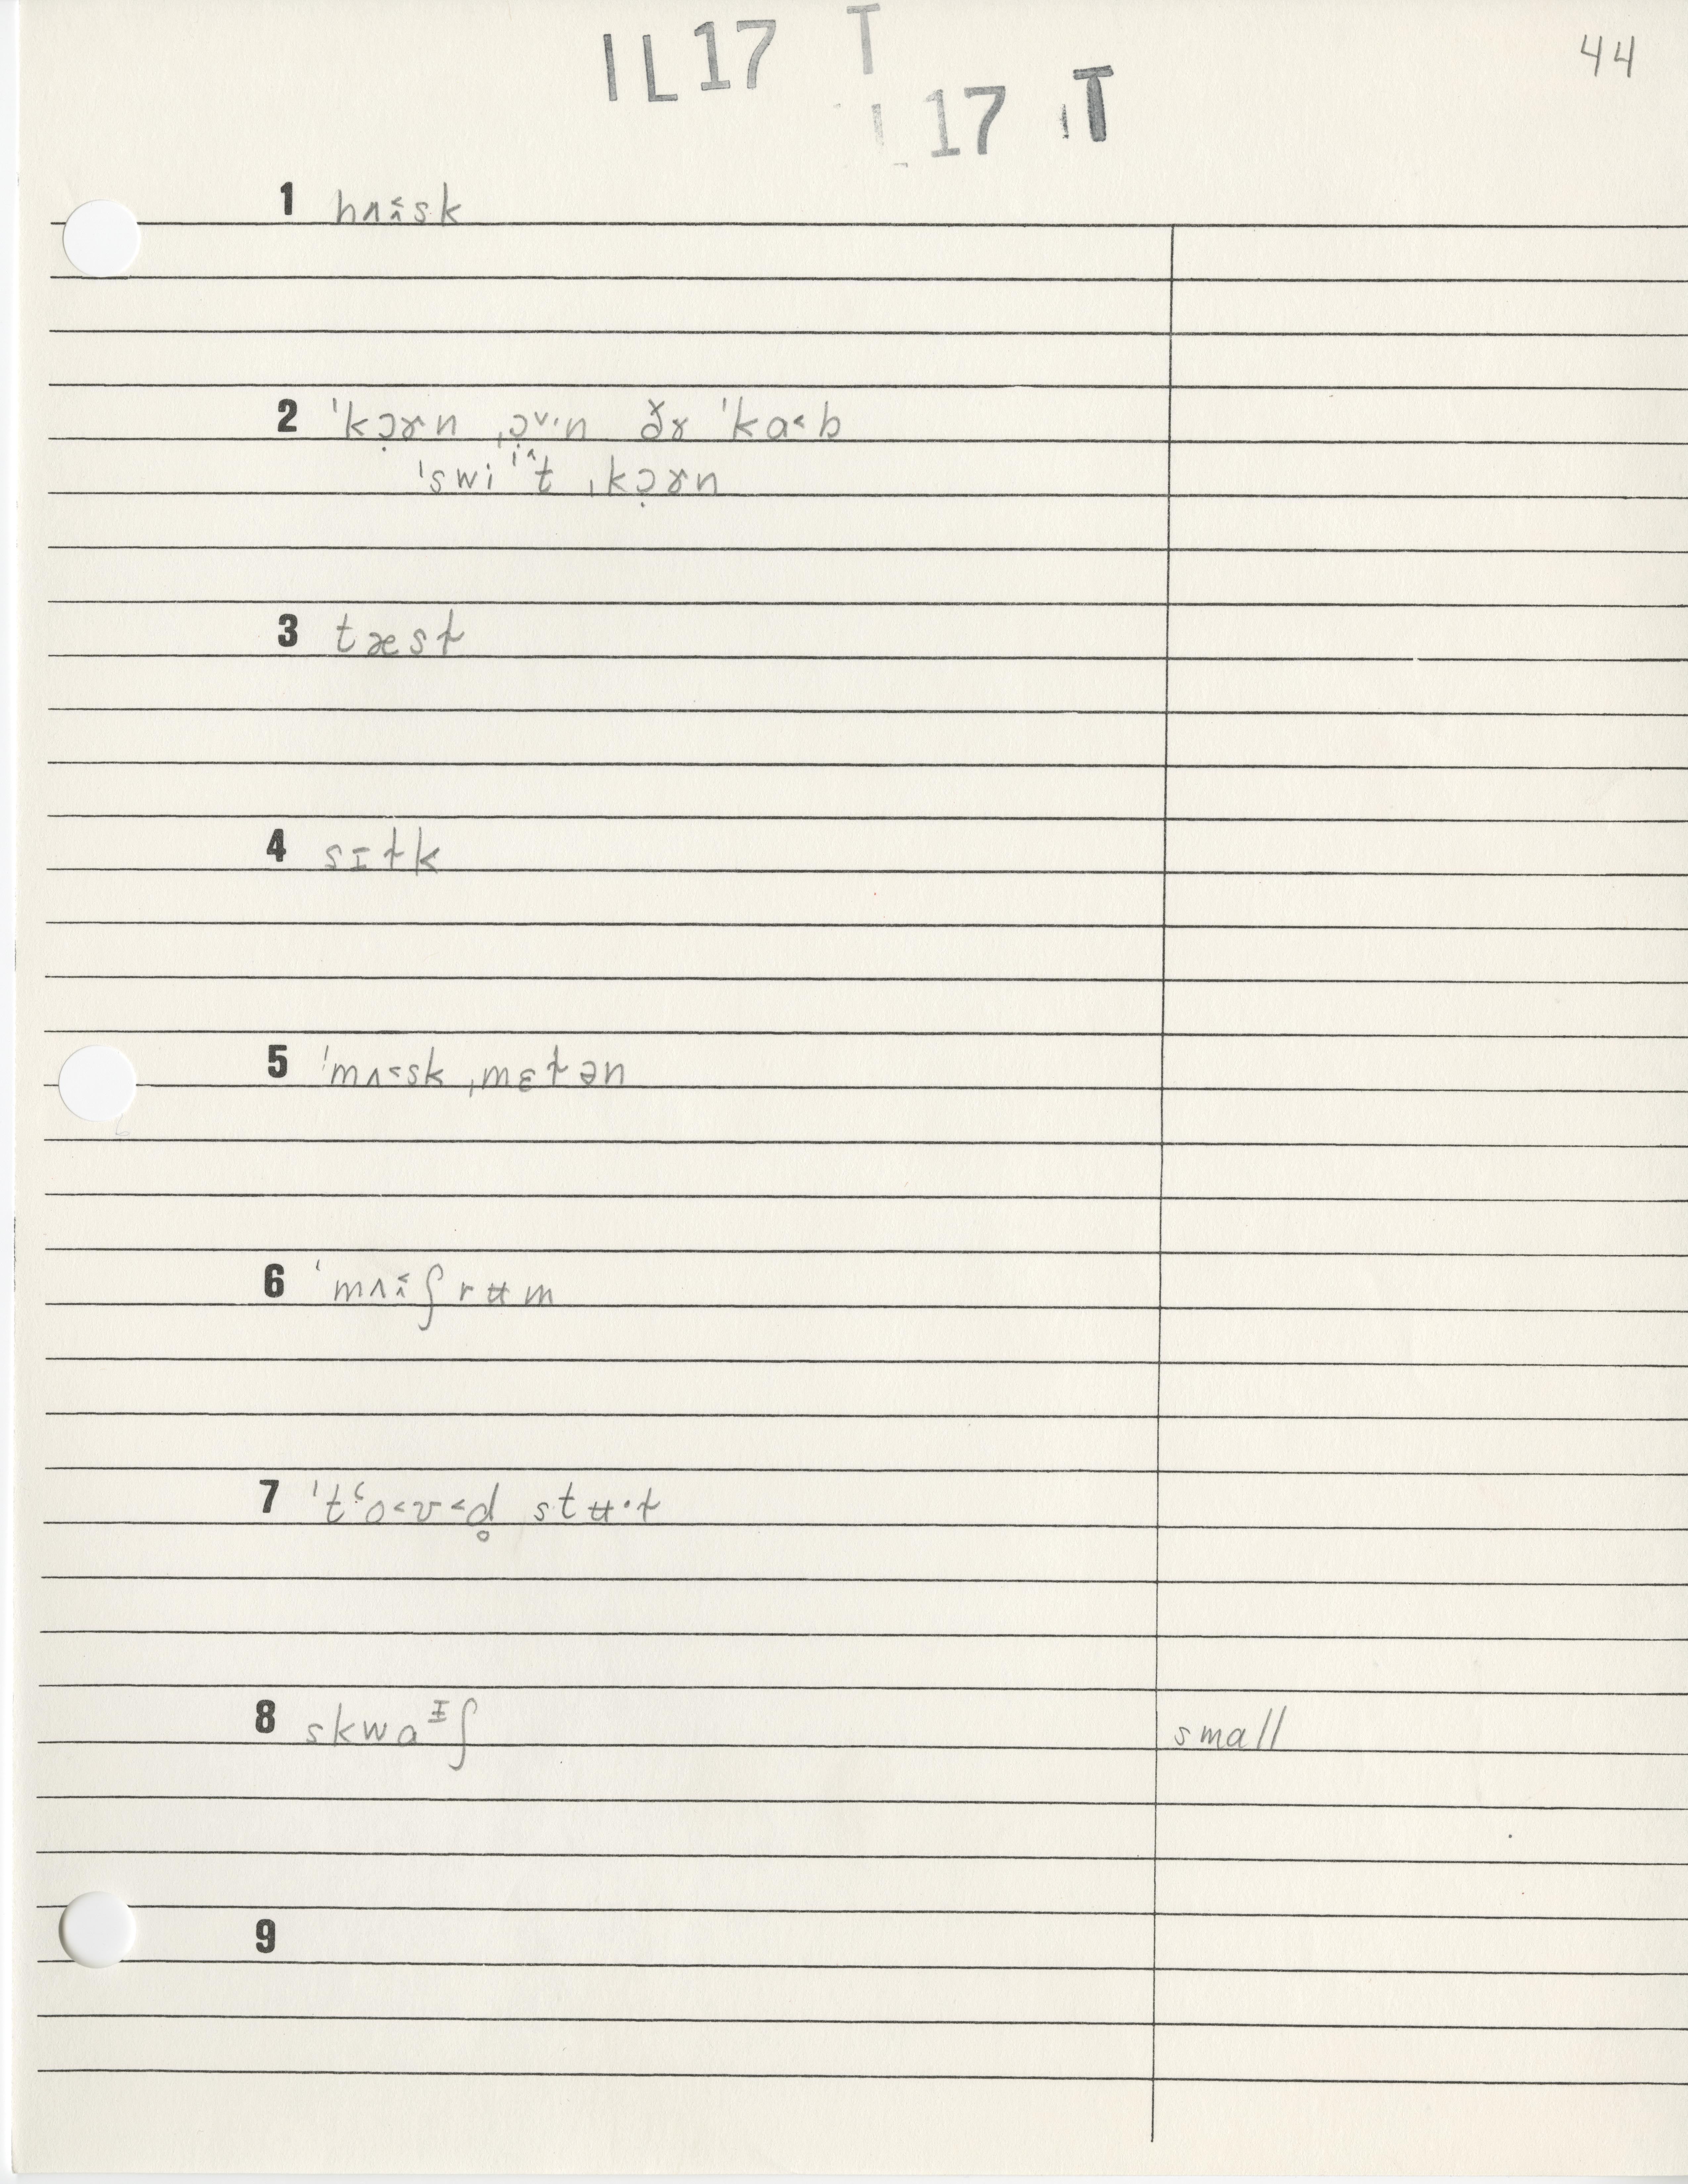 IL17 T
44
IL17 T
1 hʌ˂̂sk
2 ˈkɔ̣ɤn ˌɔ̣˅·n ðɤ ˈka˂b
ˈswiⁱ^t ˌkɔ̣ɤn
3 tæsɫ
4 sɪɫk
5 ˈmʌ˂sk ˌmɛɫən
6 ˈmʌ˂̂ʃrʉm
7 ˈtʿo˂ʊ˂d̥ stʉ·ɫ
8 skwaᶦʃ small
9